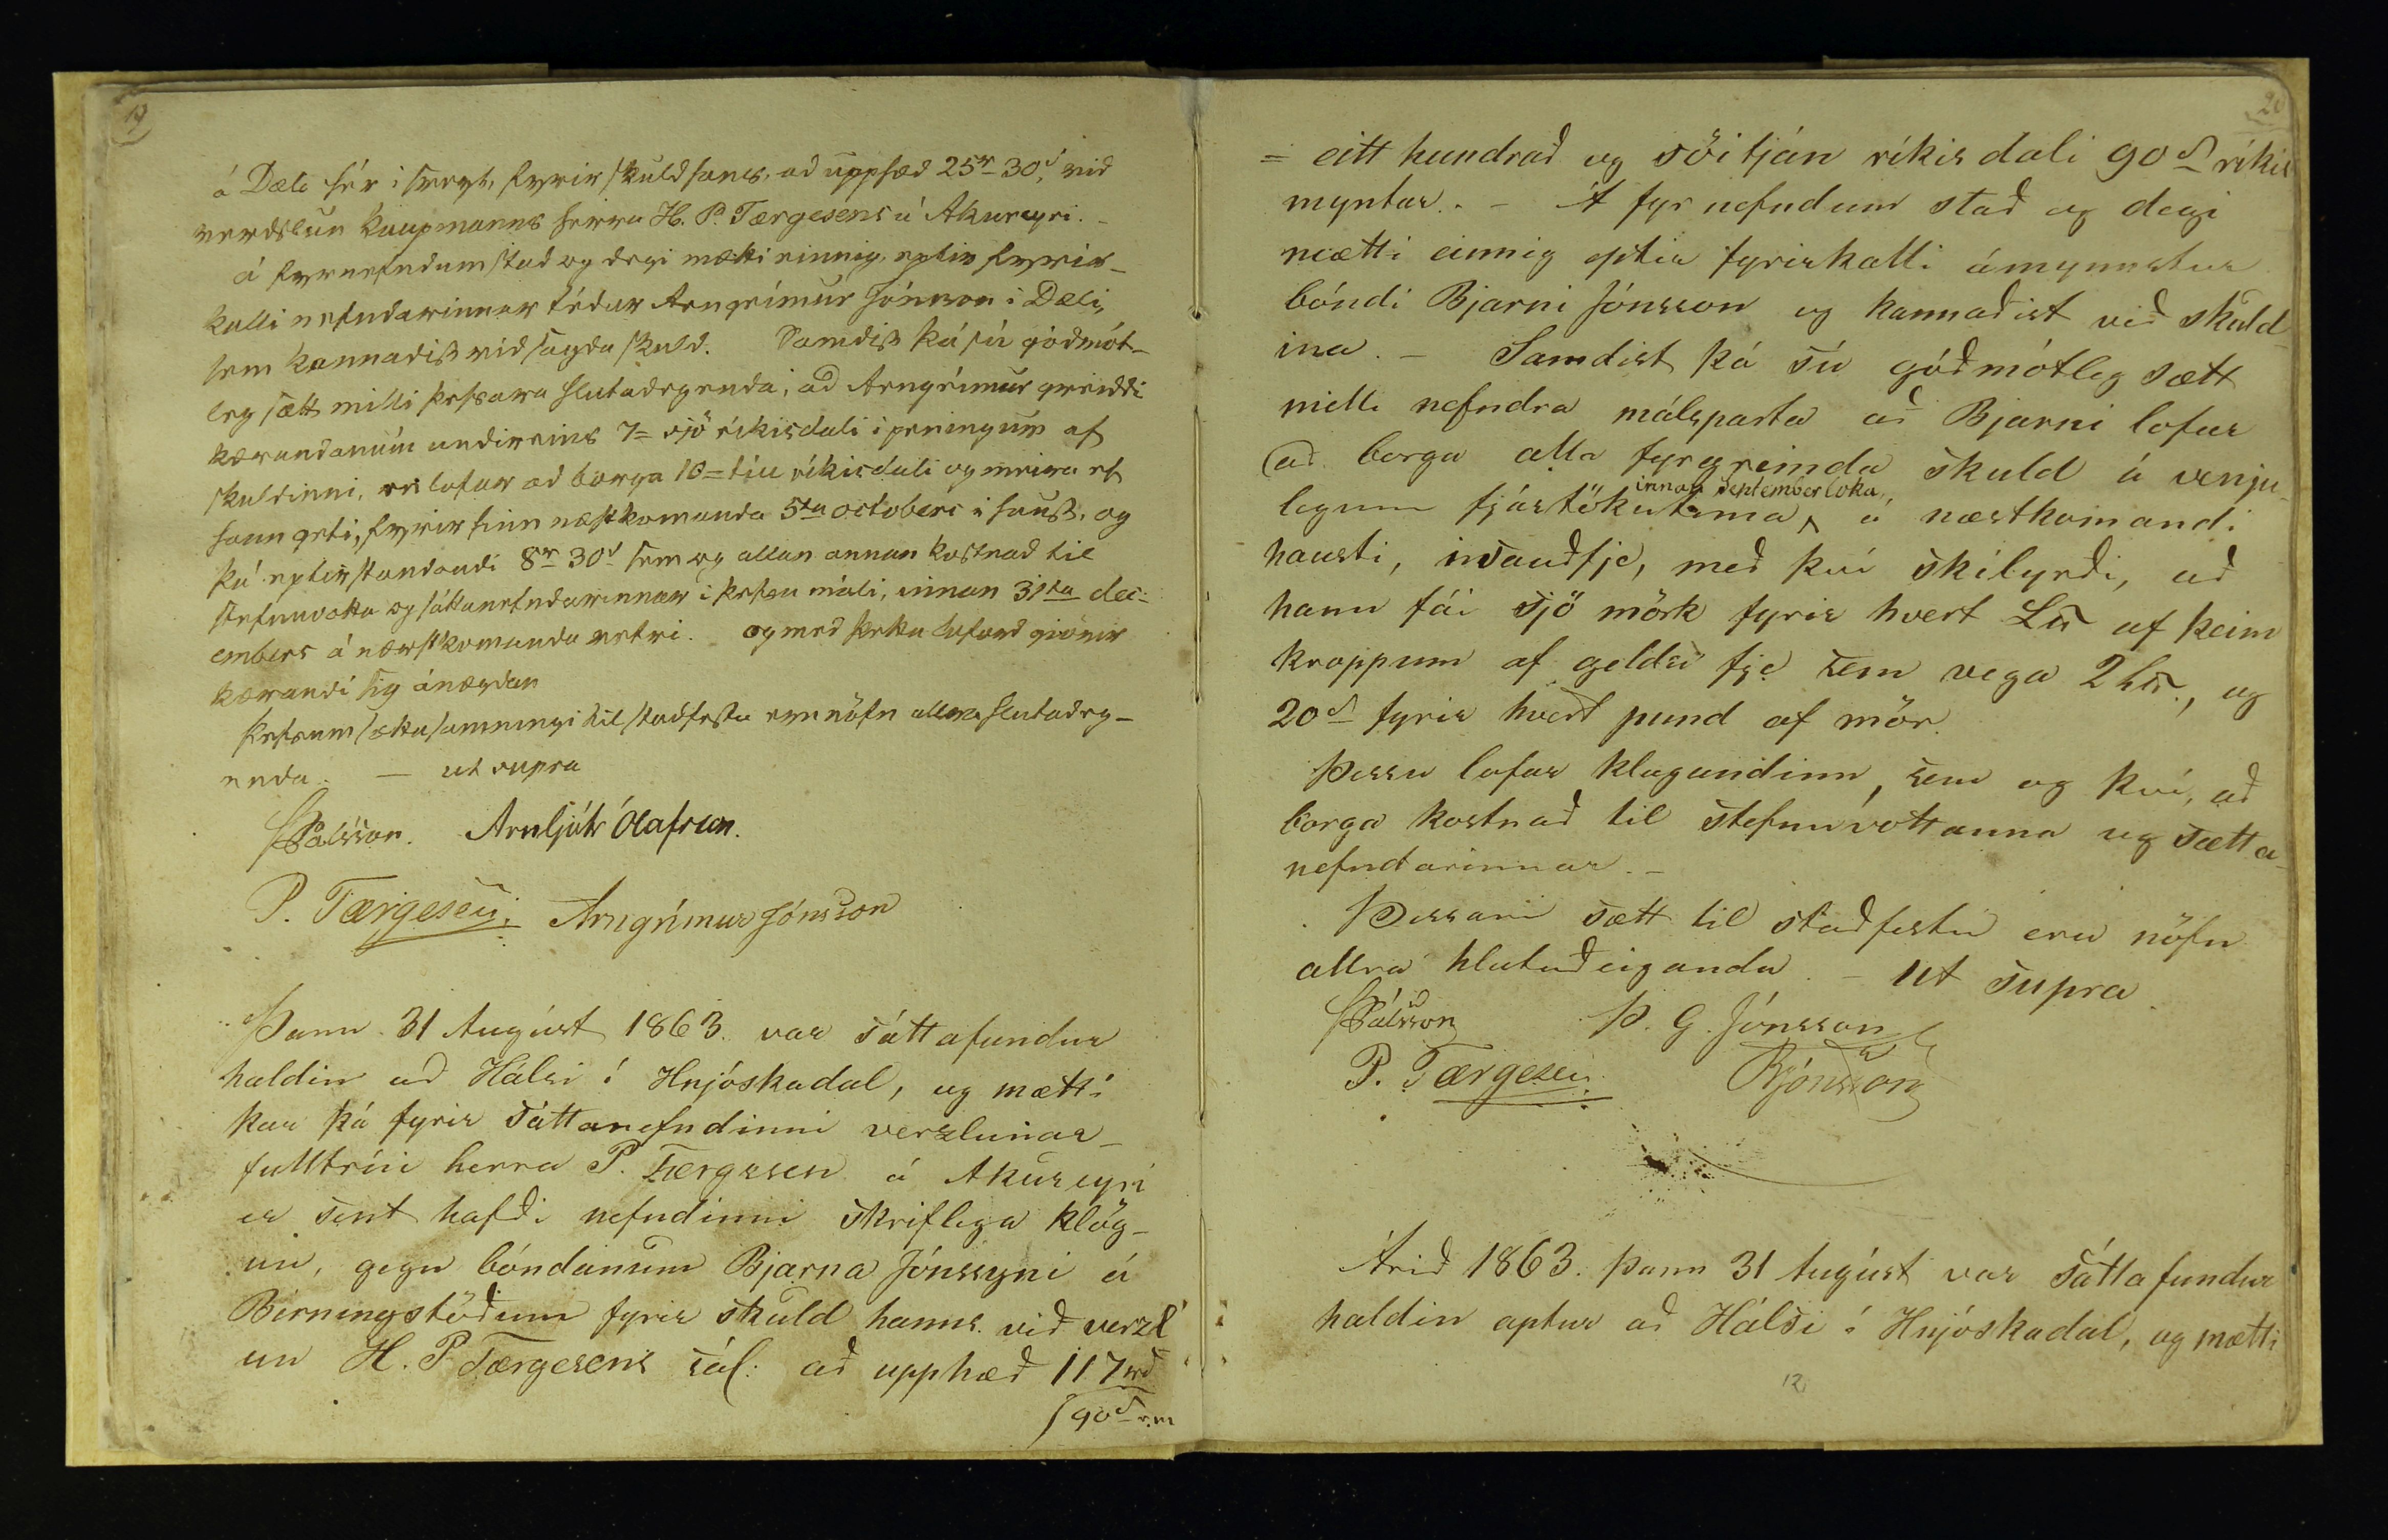 19
á Dæli hér í hrepp, fyrir skuld hans, að upphæð 25rd 30s, við
verdslun kaupmanns herra H. P. Tærgesens á Akureyri. -
á fyrnefndum stað og degi mætti einnig, eptir fyrir-
kalli nefndarinnar téður Arngrímur Jónsson í Dæli,
sem kannaðist við sagða skuld. Samdist þá sú góðmót-
leg sætt milli þessara hlutaðegenda, að Arngrímur greiddi
kærandanum undireins 7= sjö ríkisdali í peningum af
skuldinni, en lofar að borga 10= tíu ríkisdali og meira ef
hann geti, fyrir hinn næstkomanda 5ta octobers í haust, og
þá eptirstandandi 8rd 30s sem og allan annan kostnað til
stefnuvotta og sáttanefndarinnar í þessu máli, innan 31ta dec-
embers á næstkomanda vetri. og með þetta loforð giörir
kærandi sig ánægdan
Þessum sættasamningi til staðfestu eru nöfn allra hlutaðeg-
enda. — ut supra
Þ Pálsson. Arnljótr Ólafsson.
P. Tærgesen. Arngrímur Jónsson
Þann 31 August 1863. var sáttafundur
haldin að Hálsi í Hnjóskadal, og mætti
þar þá fyrir sáttanefndinni verzlunar-
fulltrúi herra P. Tærgesen á Akureyri
er sent hafði nefndinni skriflega klög-
un, gegn bóndanum Bjarna Jónssyni á
Birningstöðum fyrir skuld hanns við verzl
un H. P Tærgesens sál: að upphæð 117rd
90s r.m
20
= eitt hundrað og söitján ríkisdali 90s ríkis
myntar. - Á fyrnefndum stað og degi
mætti einnig eptir fyrirkalli ámynnstur
bóndi Bjarni Jónsson og kannaðist við skuld-
ina. - Samdist þá sú góðmótleg sætt
milli nefndra málsparta að Bjarni lofar
að borga alla fyrgreinda skuld á venju
innan septemberloka,
legum fjártökutíma, á næstkomandi
hausti, í sauðfje, með því skilyrði, að
hann fái sjö mörk fyrir hvert L℔ af þeim
kroppum af geldu fje sem vega 2 L℔., og
20s fyrir hvert pund af mör.
Þessu lofar klagandinn, sem og því, að
borga kostnað til stefnuvottanna og sætta-
nefndarinnar. -
Þessari sætt til staðfestu eru nöfn
allra hlutaðeiganda. - ut supra
Þ Pálsson Þ. G. Jónsson
P. Tærgesen BJónsson
Árið 1863. þann 31 August var sáttafundur
haldin aptur að Hálsi í Hnjóskadal, og mætti
12